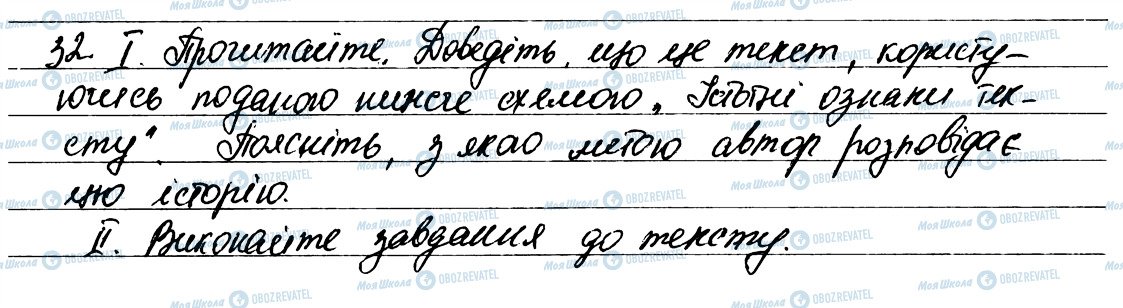 32. I. Прочитайте. Доведіть, що це текст, користу-
ючись поданою нижче схемою „Істотні ознаки тек-
сту". Поясніть, з якою метою автор розповідає
цю історію.
II. Виконайте завдання до тексту.